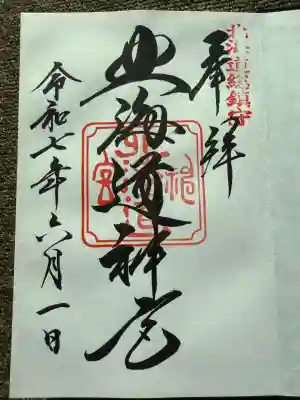 北海道総鎮守
奉拝
北海道神宮
令和七年六月一日